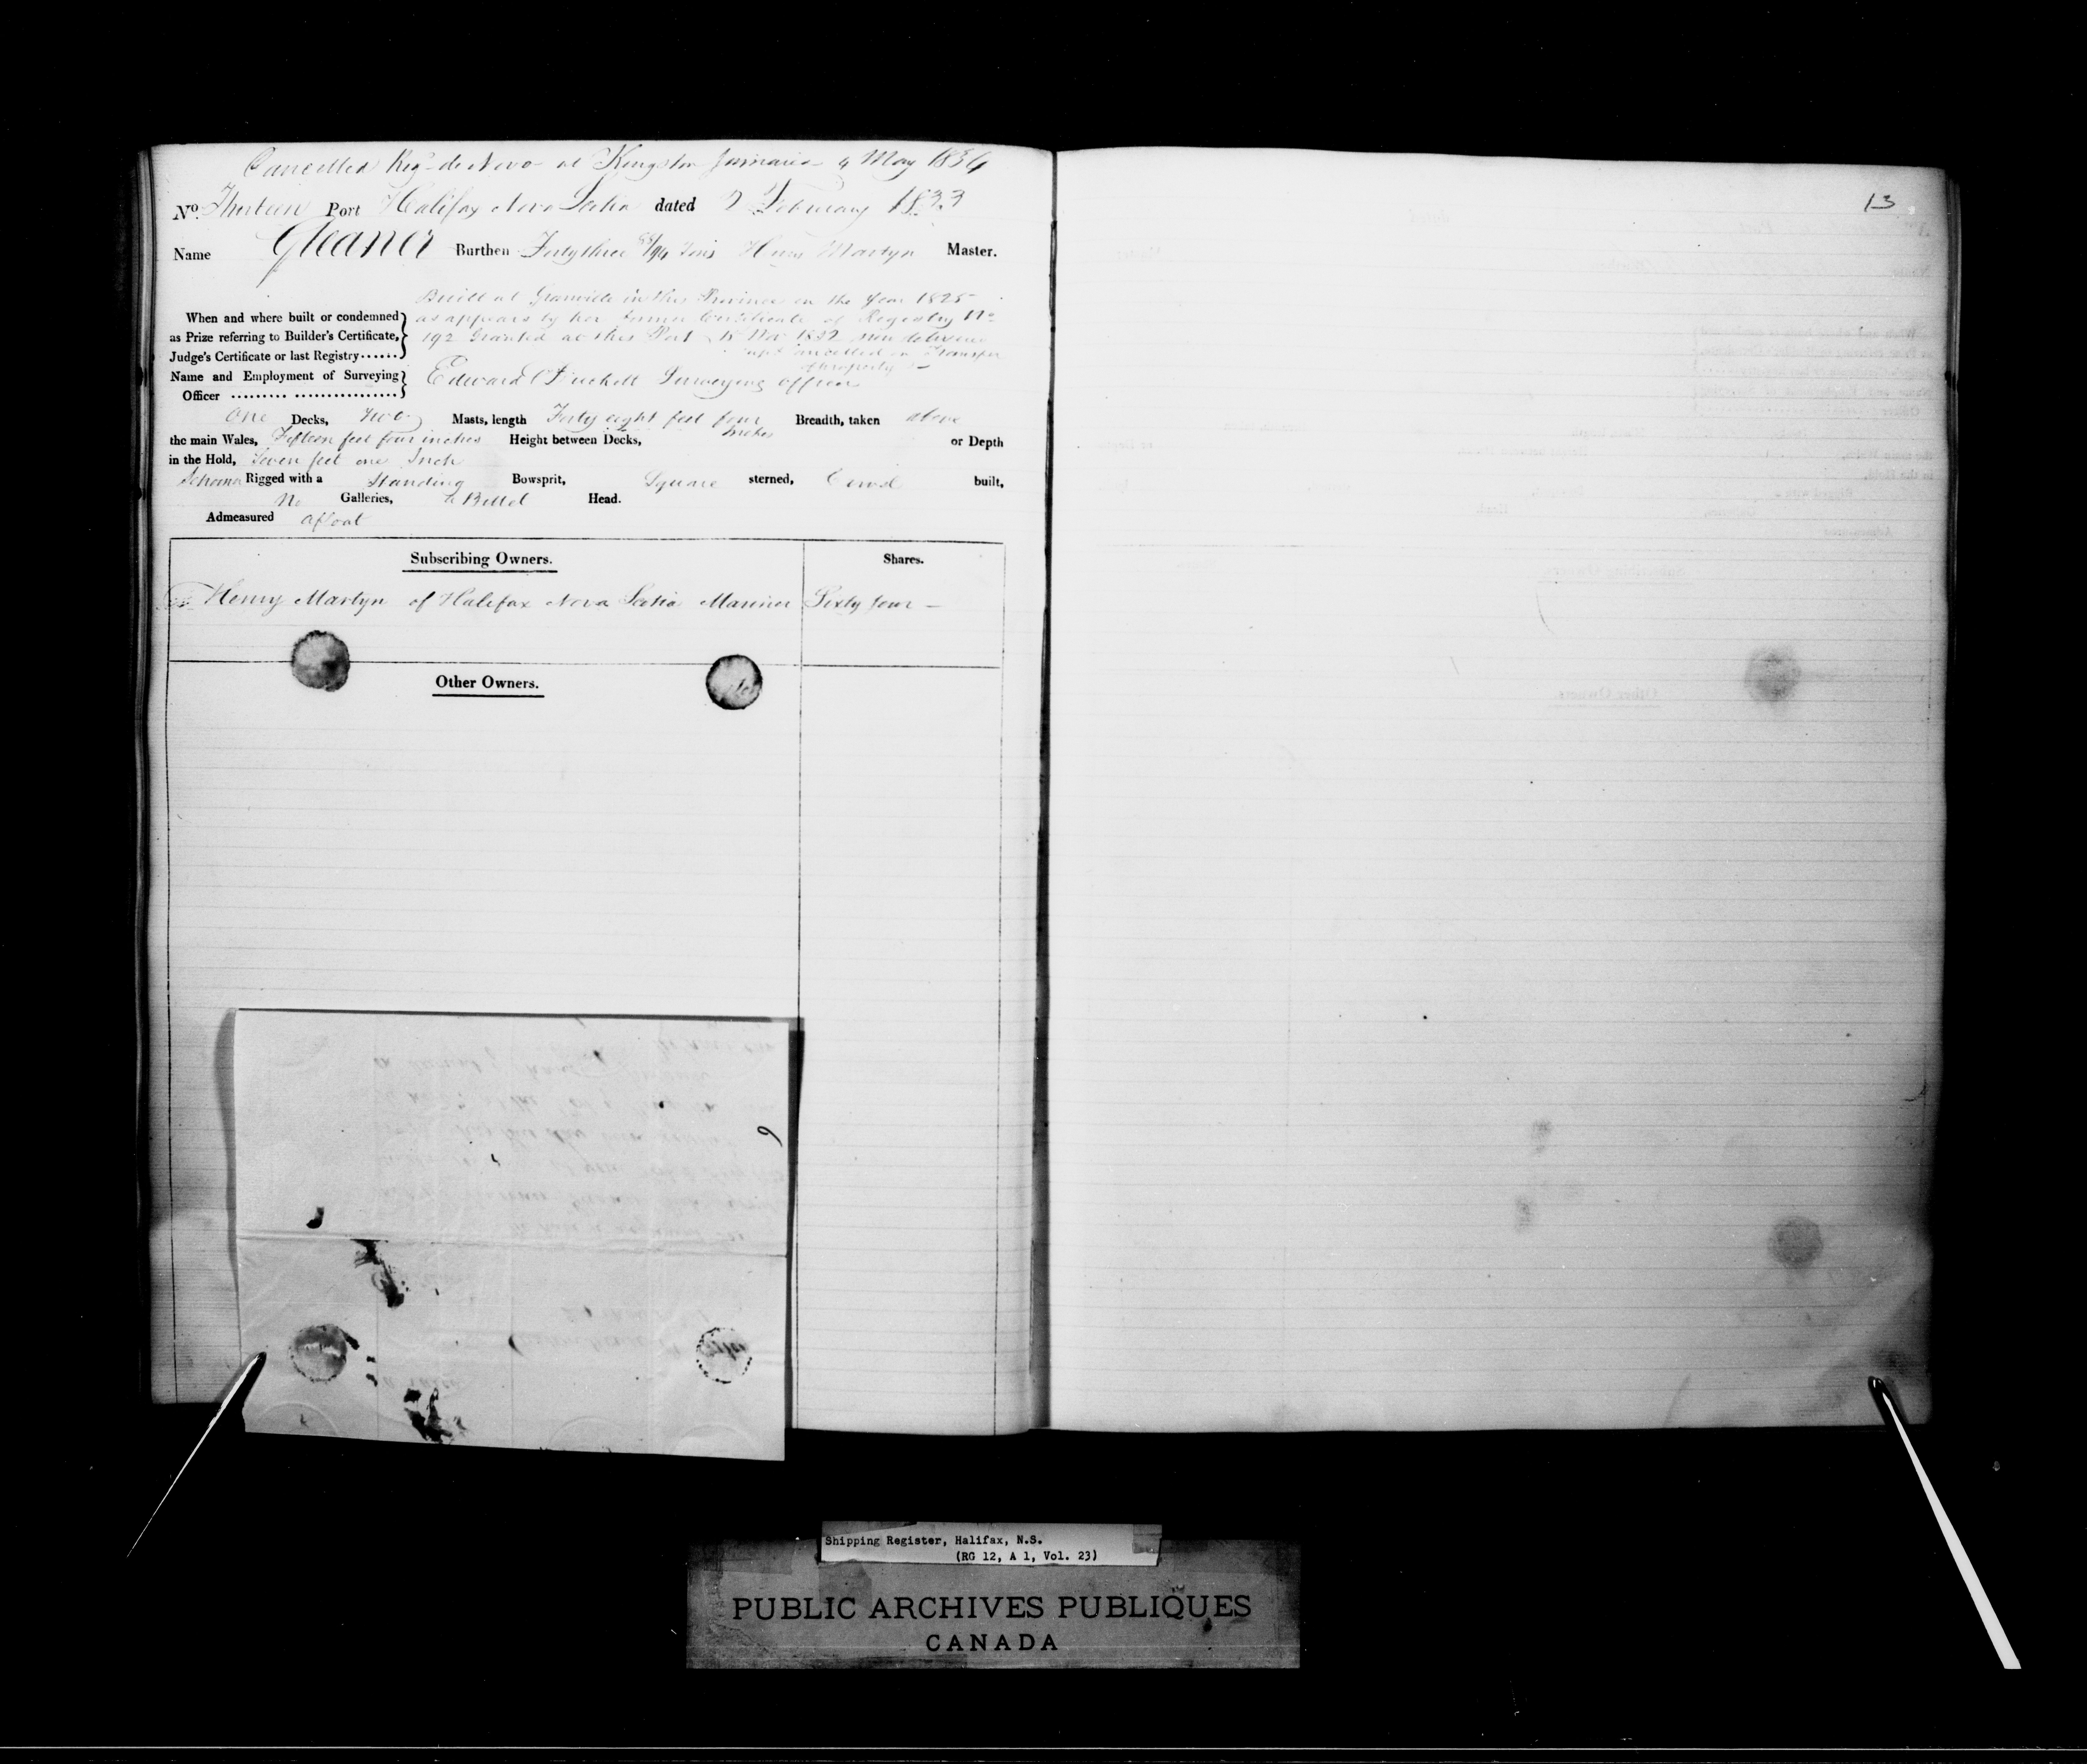 Cancelled Reg de Novo at Kingston Jamaica 9 May 1834
No. Thirteen Port Halifax Nova Scotia dated 2 February 1833
Name Gleaner Burthen Forty three /94 Tons Henry Martyn Master.
Built at Granville in this Province in the Year 1825
When and where built or condemned as appears by her former Certificate of Registry No
as Prize referring to Builder's Certificate, 192 Granted at this Port 15 Nov 1832 now delivered
Judge's Certificate or last Registry...... up & cancelled on Transfer
of property
Name and Employment of Surveying Edward Duckett Surveying Officer
Officer
One Decks, Two Masts, length Forty eight feet four Inches Breadth, taken above
the main Wales, Fifteen feet four inches Height between Decks, or Depth
in the Hold, Seven feet one Inch
Schooner Rigged with a Standing Bowsprit, Square sterned, Carvel built,
No Galleries, a Billet Head.
Admeasured afloat
Subscribing Owners. Shares.
Henry Martyn of Halifax Nova Scotia Mariner Sixty four —
Other Owners.
6
13
Shipping Register, Halifax, N.S.
(RG 12, A 1, Vol. 23)
PUBLIC ARCHIVES PUBLIQUES
CANADA